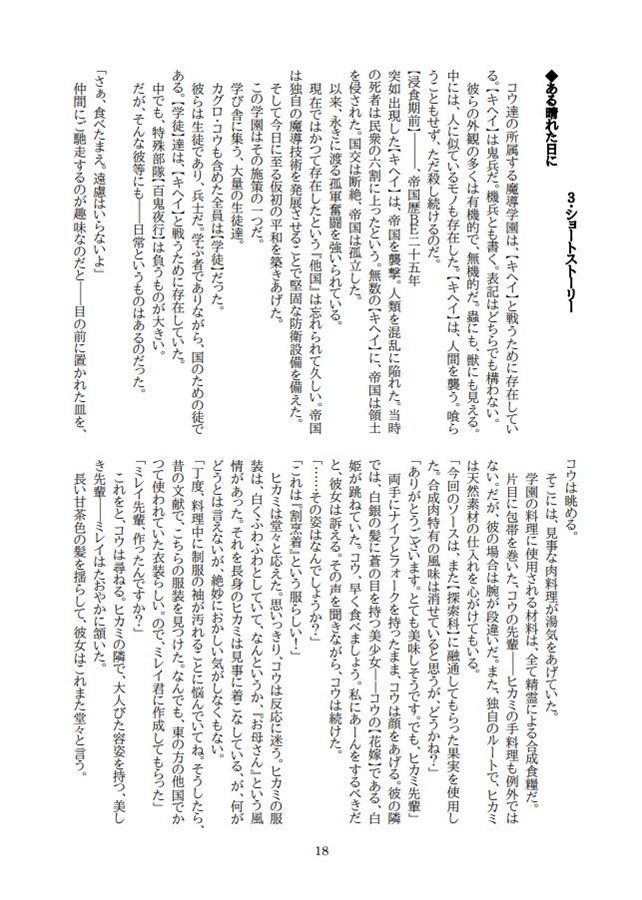 3・ショートストーリー
◆ある晴れた日に
コウ達の所属する魔導学園は、【キヘイ】と戦うために存在してい
る。【キヘイ】は鬼兵だ。機兵とも書く。表記はどちらでも構わない。
彼らの外観の多くは有機的で、無機的だ。蟲にも、獣にも見える。
中には、人に似ているモノも存在した。【キヘイ】は、人間を襲う。喰ら
うこともせず、ただ殺し続けるのだ。
【浸食期前】――、帝国歴BE二十五年
突如出現した【キヘイ】は、帝国を襲撃。人類を混乱に陥れた。当時
の死者は民衆の六割に上ったという。無数の【キヘイ】に、帝国は領土
を侵された。国交は断絶、帝国は孤立した。
以来、永きに渡る孤軍奮闘を強いられている。
現在ではかつて存在したという『他国』は忘れられて久しい。帝国
は独自の魔導技術を発展させることで堅固な防衛設備を備えた。
そして今日に至る仮初の平和を築きあげた。
この学園はその施策の一つだ。
学び舎に集う、大量の生徒達。
カグロ・コウも含めた全員は【学徒】だった。
彼らは生徒であり、兵士だ。学ぶ者でありながら、国のための徒で
ある。【学徒】達は、【キヘイ】と戦うために存在していた。
中でも、特殊部隊【百鬼夜行】は負うものが大きい。
だが、そんな彼等にも――日常というものはあるのだった。
「さぁ、食べたまえ。遠慮はいらないよ」
仲間にご馳走するのが趣味なのだと――目の前に置かれた皿を、
コウは眺める。
そこには、見事な肉料理が湯気をあげていた。
学園の料理に使用される材料は、全て精霊による合成食糧だ。
片目に包帯を巻いた、コウの先輩――ヒカミの手料理も例外では
ない。だが、彼の場合は腕が段違いだ。また、独自のルートで、ヒカミ
は天然素材の仕入れを心がけてもいる。
「今回のソースは、また【探索科】に融通してもらった果実を使用し
た。合成肉特有の風味は消せていると思うが、どうかね?」
「ありがとうございます。とても美味しそうです。でも、ヒカミ先輩」
両手にナイフとフォークを持ったまま、コウは顔をあげる。彼の隣
では、白銀の髪に蒼の目を持つ美少女――コウの【花嫁】である、白
姫が跳ねていた。コウ、早く食べましょう。私にあーんをするべきだ
と、彼女は訴える。その声を聞きながら、コウは続けた。
「……その姿はなんでしょうか?」
「これは『割烹着』という服らしい!」
ヒカミは堂々と応えた。思いっきり、コウは反応に迷う。ヒカミの服
装は、白くふわふわとしていて、なんというか、『お母さん』という風
情があった。それを長身のヒカミは見事に着こなしている、が、何が
どうとは言えないが、絶妙におかしい気がしなくもない。
「丁度、料理中に制服の袖が汚れることに悩んでいてね。そうしたら、
昔の文献で、こちらの服装を見つけた。なんでも、東の方の他国でか
つて使われていた衣装らしい。ので、ミレイ君に作成してもらった」
「ミレイ先輩、作ったんですか?」
これをと、コウは尋ねる。ヒカミの隣で、大人びた容姿を持つ、美し
き先輩――ミレイはたおやかに頷いた。
長い甘茶色の髪を揺らして、彼女はこれまた堂々と言う。
18